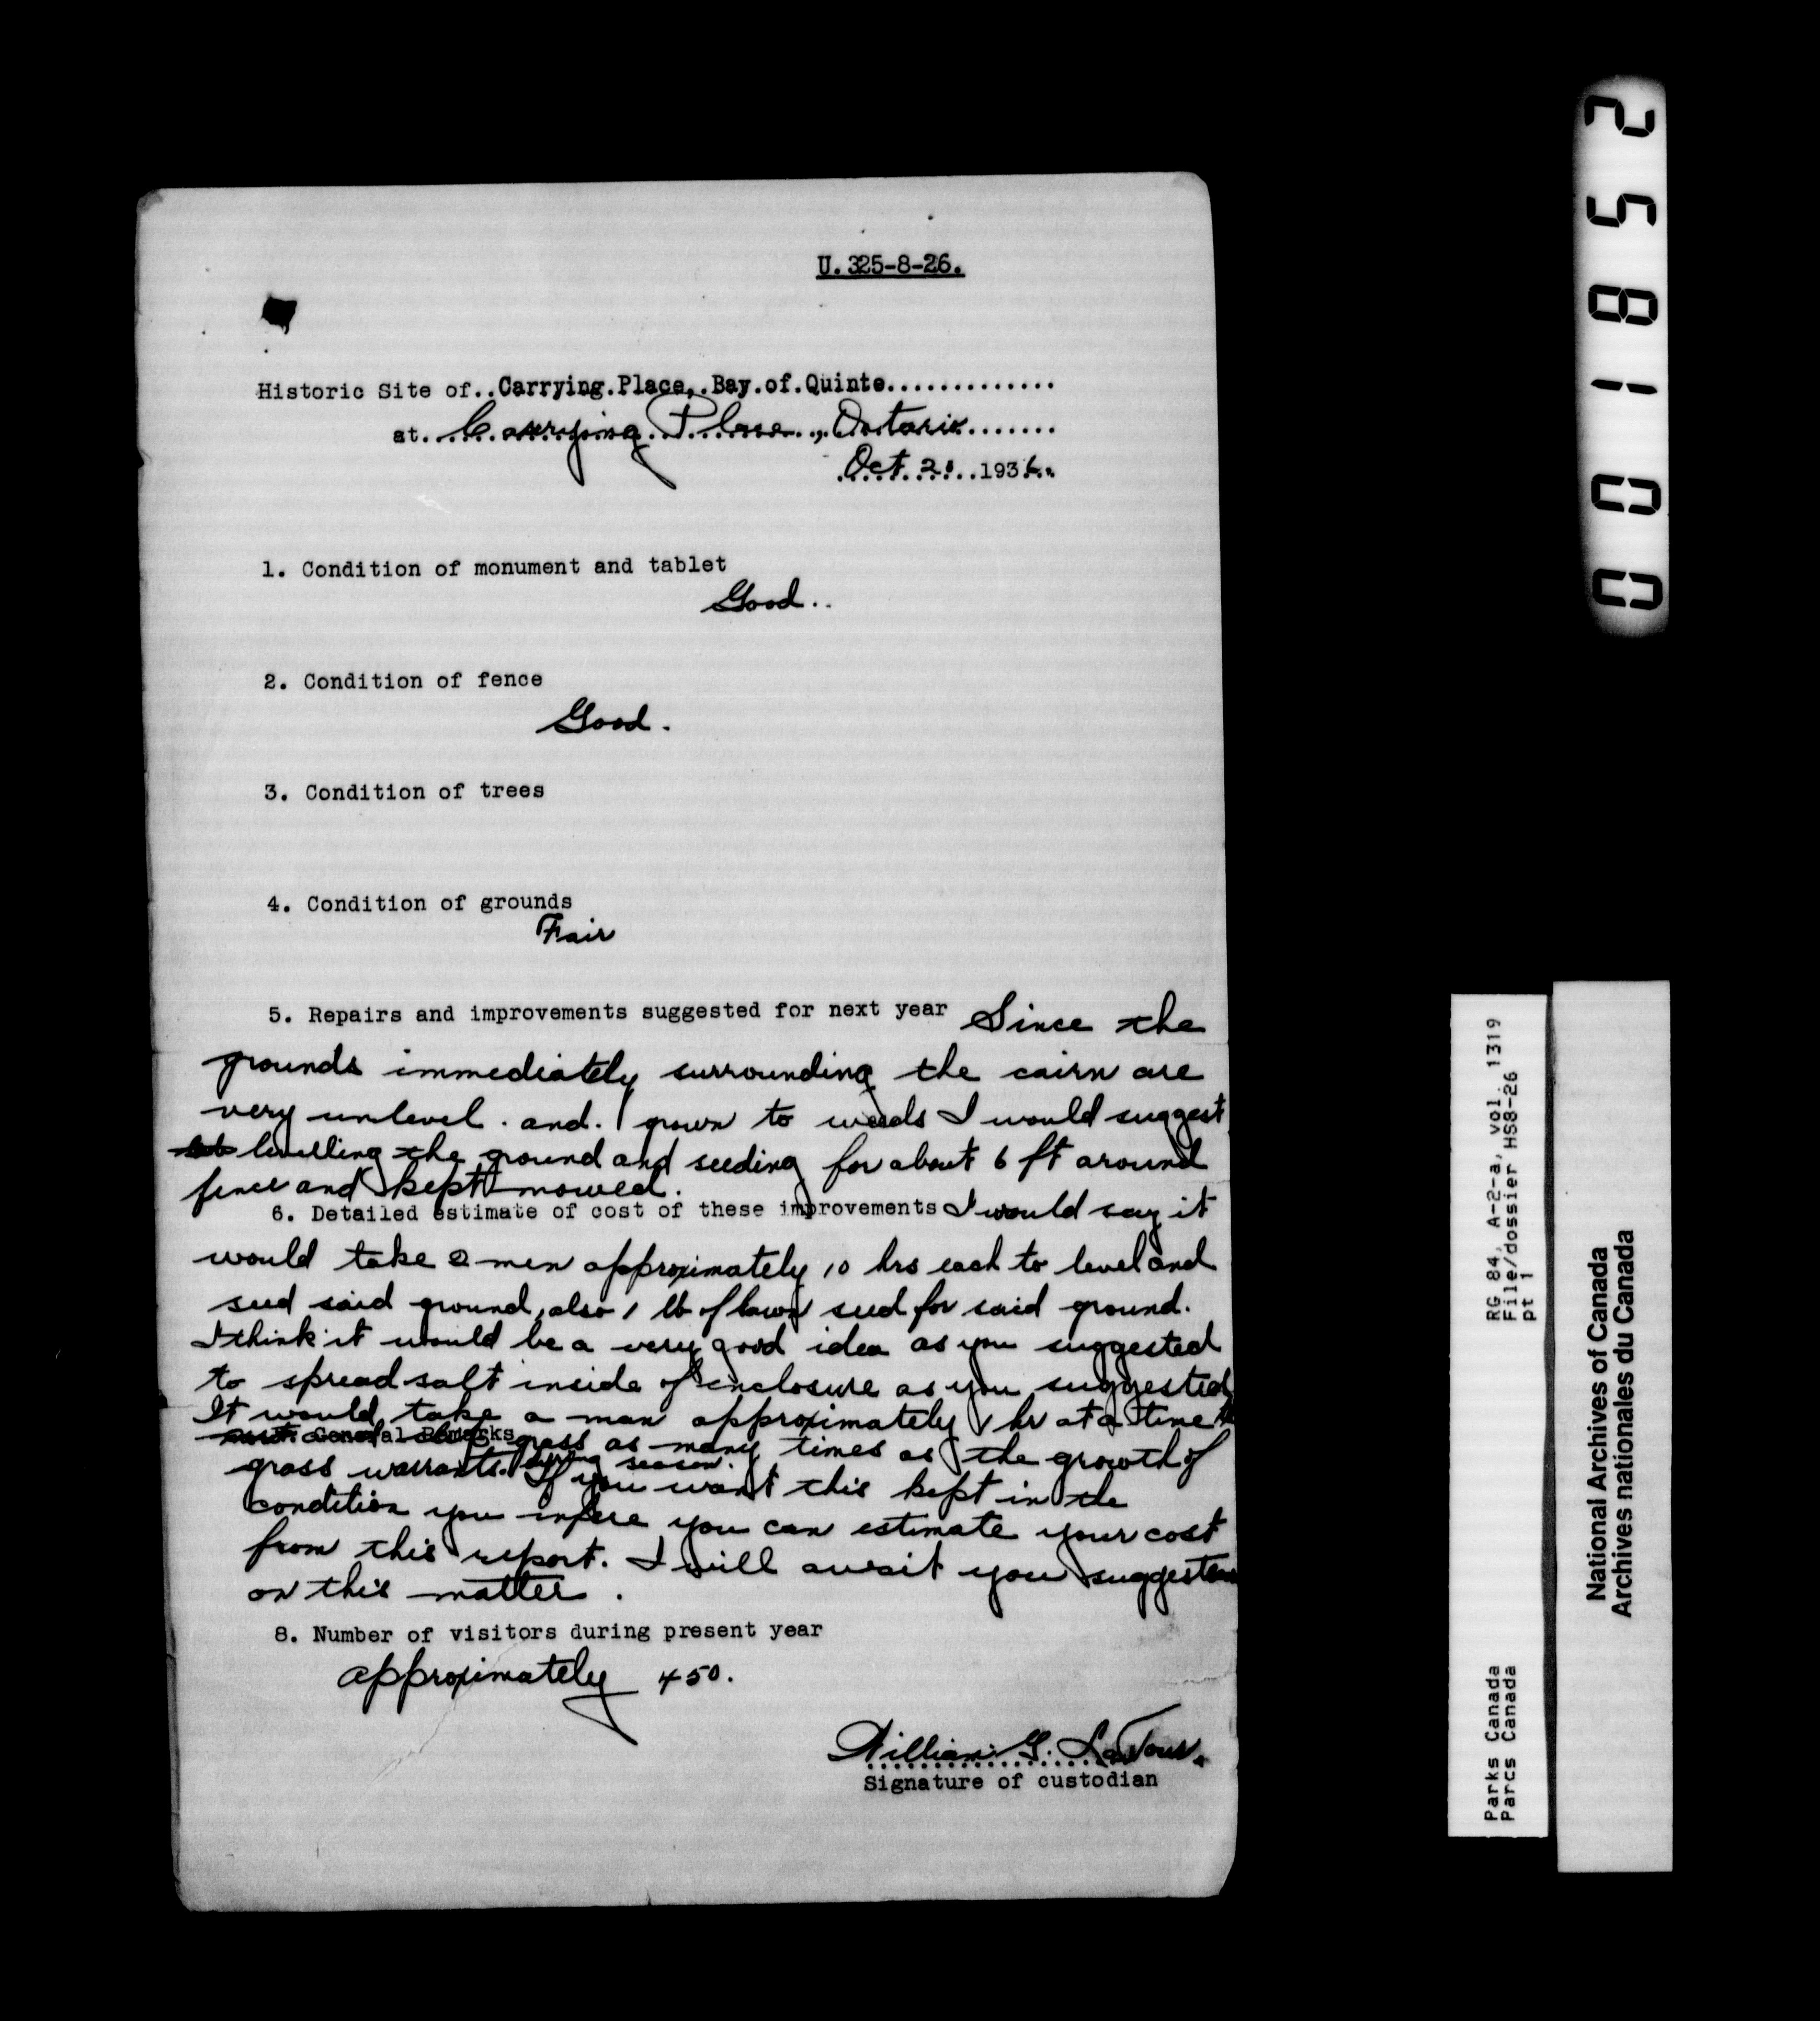 U.325-8-26.
Historic Site of..Carrying.Place,.Bay.of.Quinte..............
at...Carrying Place, Ontario.......
Oct. 20..193
1. Condition of monument and tablet
Good..
2. Condition of fence
Good.
3. Condition of trees
4. Condition of grounds
Fair
5. Repairs and improvements suggested for next year Since the
grounds immediately surrounding the cairn are
very unlevel. and. grown to weeds I would suggest
levelling the ground and seeding for about 6 ft around
fence and kept mowed.
6. Detailed estimate of cost of these improvements I would say it
would take 2 men approximately 10 hrs each to level and
seed said ground, also 1 lb of lawn seed for said ground.
I think it would be a very good idea as you suggested
to spread salt inside of enclosure as you suggested
It would take a man approximately 1 hr at a time to
General Remarks grass as many times as the growth of
grass warrants. during season. If you want this kept in the
condition you you can estimate your cost
from this report. I will await you suggestions
on this matter.
8. Number of visitors during present year
approximately 450.
William G. LaTour.
Signature of custodian
001852
RG 84, A-2-a, vol. 1319
File/dossier HS8-26
pt 1
Parks Canada
Parcs Canada
National Archives of Canada
Archives nationales du Canada